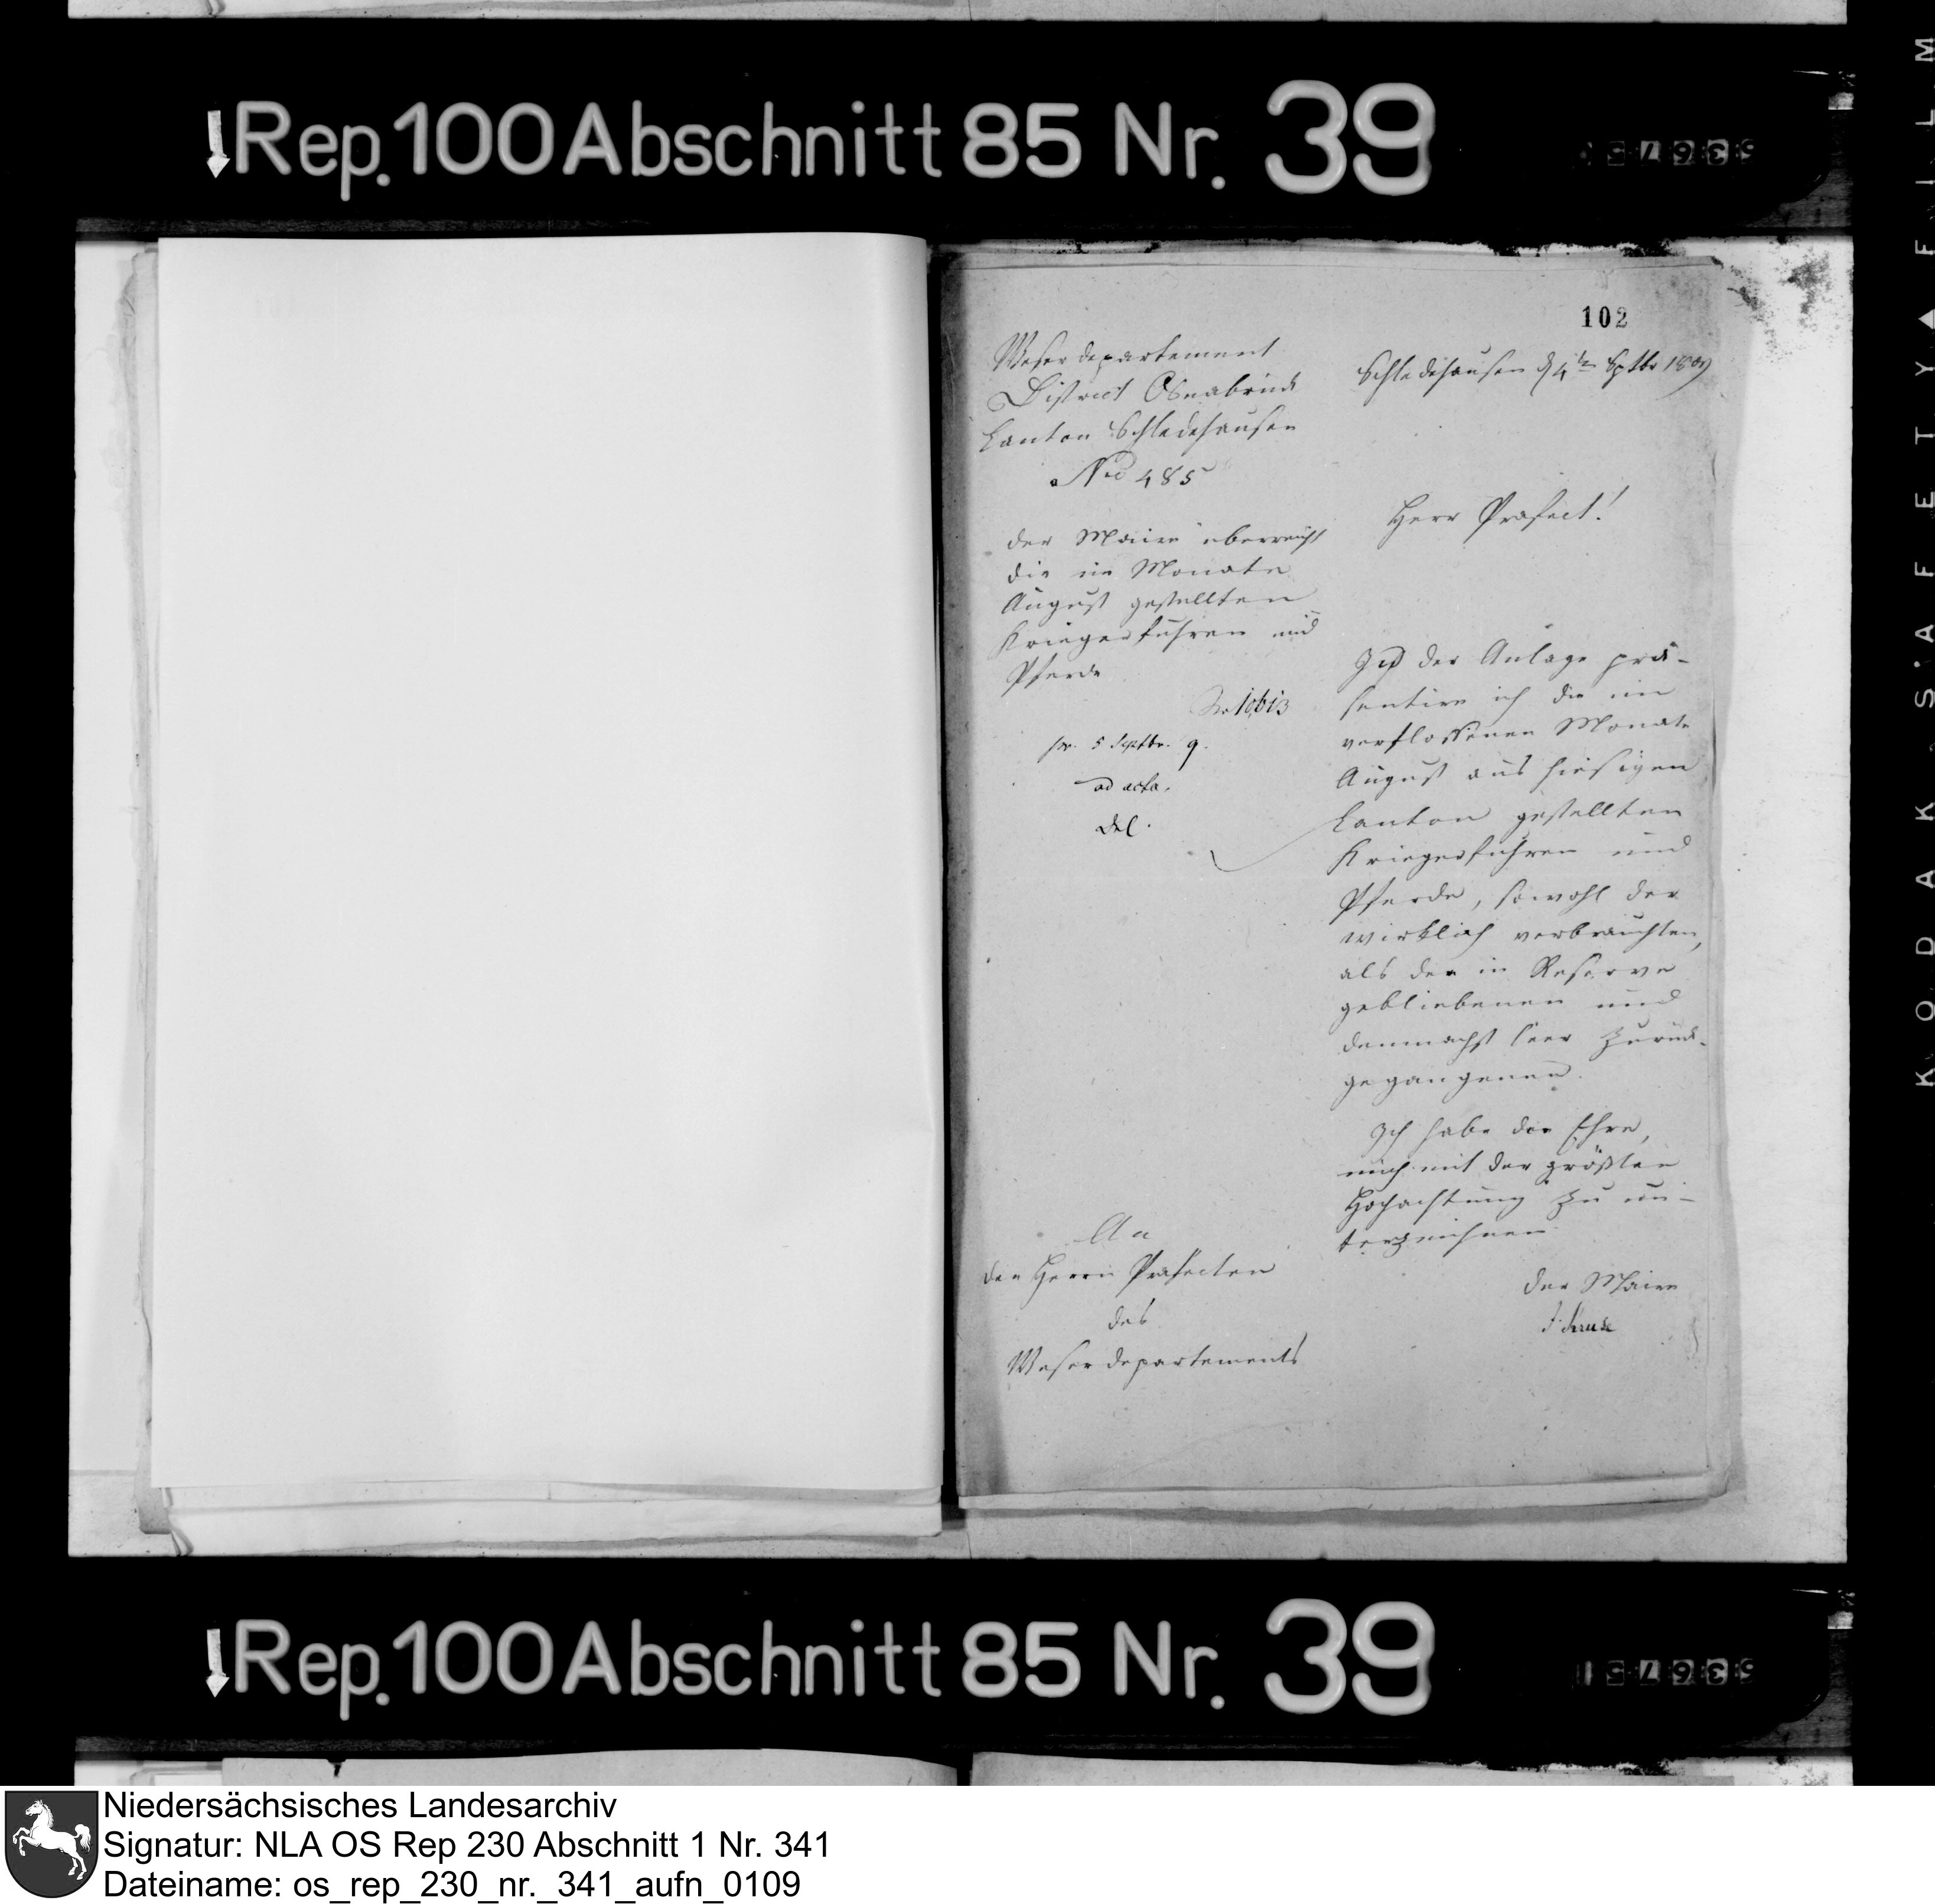 Rep. 100 Abschnitt 85 Nr. 39
102
Weserdepartement
District Osnabrück
Canton Schledehausen
Nro 485
Schledehausen d 4ten Sptbr 1809
Herr Präfect!
der Maire überreicht
die im Monate
August gestellten
Kriegerfuhren und
Pferde
pr. 5 Septbr. 9.
ad acta.
Del.
In der Anlage prä-
sentire ich die im
verflossenen Monate
August aus hiesigen
Canton gestellten
Kriegerfuhren und
Pferde, sowohl der
wirklich verbrauchten,
als der in Reserve
gebliebenen und
demnächst leer zurück-
gegangenen.
Ich habe die Ehre,
mich mit der größten
Hochachtung zu un-
terzeichnen
der Maire
J. Kruse
An
den Herrn Präfecten
des
Weserdepartements
Rep. 100 Abschnitt 85 Nr. 39
KODAK SAFETY FILM
Niedersächsisches Landesarchiv
Signatur: NLA OS Rep 230 Abschnitt 1 Nr. 341
Dateiname: os_rep_230_nr._341_aufn_0109